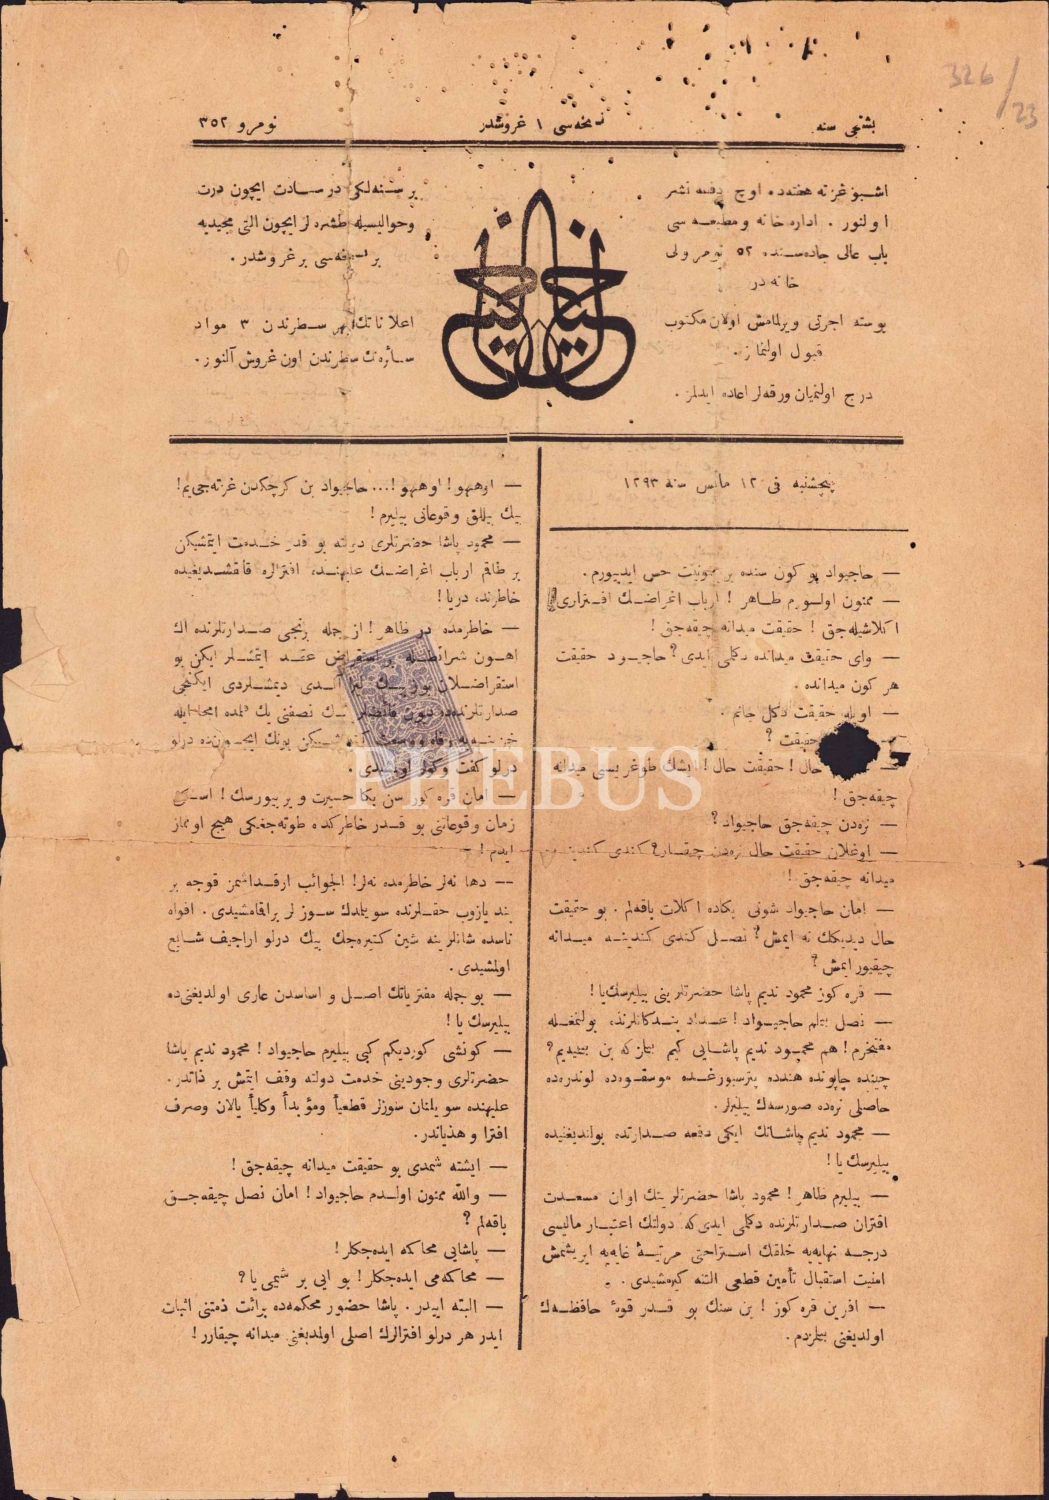 326/23
بشنجی سنه
نسخه‌سی ۱ غروشدر
نومرو ۳۵۲
اشبو غزته هفته‌ده اوچ دفعه نشر
اولنور . اداره خانه و مطبعه سی
باب عالی جاده‌سنده ۵۲ نومرولی
خانه در
پوسته اجرتی ویرلمامش اولان مکتوب
قبول اولنماز .
درج اولنمیان ورقه‌لر اعاده ایدلمز .
خیال
بر سنه‌لکی در سعادت ایچون درت
وحوالیسیله طشره لر ایچون التی مجیدیه
بر نسخه‌سی بر غروشدر .
اعلاناتك بهر سطرندن ۳ مواد
سائره‌نك سطرندن اون غروش آلنور .
پنجشنبه فی ۱۲ مارت سنه ۱۲۹۳
— حاجیواد بو کون سنده بر ممنونیت حس ایدییورم .
— ممنون اولورم ظاهر ! ارباب اغراضك افتراری
اکلاشیله‌جق ! حقیقت میدانه چیقه‌جق !
— وای حقیقت میدانده دکلمی ایدی ؟ حاجیود حقیقت
هر کون میدانده .
— اویله حقیقت دکل جانم .
حقیقت ؟
— حال ! حقیقت حال ! ایشك طوغریسی میدانه
چیقه‌جق !
— نره‌دن چیقه‌جق حاجیواد ؟
— اوغلان حقیقت حال نره‌دن چیقار ؟ کندی کندینه
میدانه چیقه‌جق !
— امان حاجیواد شونی بکاده اکلات باقه‌لم . بو حقیقت
حال دیدیکك نه ایمش ؟ نصل کندی کندینه میدانه
چیقیور ایمش ؟
— قره کوز محمود ندیم پاشا حضرتلرینی بیلیرسك یا !
— نصل بیلم حاجیواد ! عداد بندکانلرنده بولنمغله
مفتخرم ! هم محمود ندیم پاشایی کیم بیلمز که بن بیلمیه‌یم ؟
چینده چاپونده هندده پترسبورغده موسقوه‌ده لوندره‌ده
حاصلی نره‌ده صورسه‌ك بیلیرلر .
— محمود ندیم پاشانك ایکی دفعه صدارتده بولندیغنیده
بیلیرسك یا !
— بیلیرم ظاهر ! محمود پاشا حضرتلرینك اوان مسعدت
اقتران صدارتلرنده دکلمی ایدی که دولتك اعتبار مالیسی
درجه نهایه‌یه خلقك استراحتی مرتبهٔ غایه‌یه ایریشمش
امنیت استقبال تأمین قطعی التنه کیرمشیدی .
— افرین قره کوز ! بن سنك بو قدر قوهٔ حافظه‌ك
اولدیغنی بیلمزدم .
— اوهوهو ! اوهوهو !... حاجیواد بن کرچکدن غزته‌جی‌یم !
بیك ییللق وقوعاتی بیلیرم !
— محمود پاشا حضرتلری دولته بو قدر خدمت ایتمشیکن
بر طاقم ارباب اغراضك علیهنده افترالره قالقشدیغیده
خاطرنده دریا !
— خاطرمده در ظاهر ! از جمله برنجی صدارتلرنده اك
اهون شرائطله بر استقراض عقد ایتمشلر ایکن بو
استقراضدن یوز بیك لیرا آلدی دیمشلردی ایکنجی
صدارتلرنده دیون فائضلرینك نصفنی بر قلمده امحا ایله
درلو کفت وکولر اولمشدی .
— امان قره کوز سن بکا حیرت ویرییورسك ! اسکی
زمان وقوعاتنی بو قدر خاطرکده طوته‌جغکی هیچ اومماز
ایدم !
— دها نه‌لر خاطرمده نه‌لر ! الجوائب ارقداشمز قوجه بر
بند یازوب حقلرنده سویلمدك سوز لر براقمامشیدی . افواه
ناسده شانلرینه شین کتیره‌جك بیك درلو اراجیف شایع
اولمشیدی .
— بو جمله مفتریاتك اصل و اساسدن عاری اولدیغنی‌ده
بیلیرسك یا !
— کونشی کوردیکم کبی بیلیرم حاجیواد ! محمود ندیم پاشا
حضرتلری وجودینی خدمت دولته وقف ایتمش بر ذاتدر .
علیهنده سویلنان سوزلر قطعیاً ومؤبداً وکلیاً یالان وصرف
افترا و هذیاندر .
— ایشته شمدی بو حقیقت میدانه چیقه‌جق !
— والله ممنون اولدم حاجیواد ! امان نصل چیقه‌جق
باقه‌لم ؟
— پاشایی محاکمه ایده‌جکلر !
— محاکمه‌می ایده‌جکلر ! بو ایی بر شیمی یا ؟
— البته اییدر . پاشا حضور محکمه‌ده برائت ذمتنی اثبات
ایدر هر درلو افترالرك اصلی اولمدیغنی میدانه چیقارر !
PHEBUS